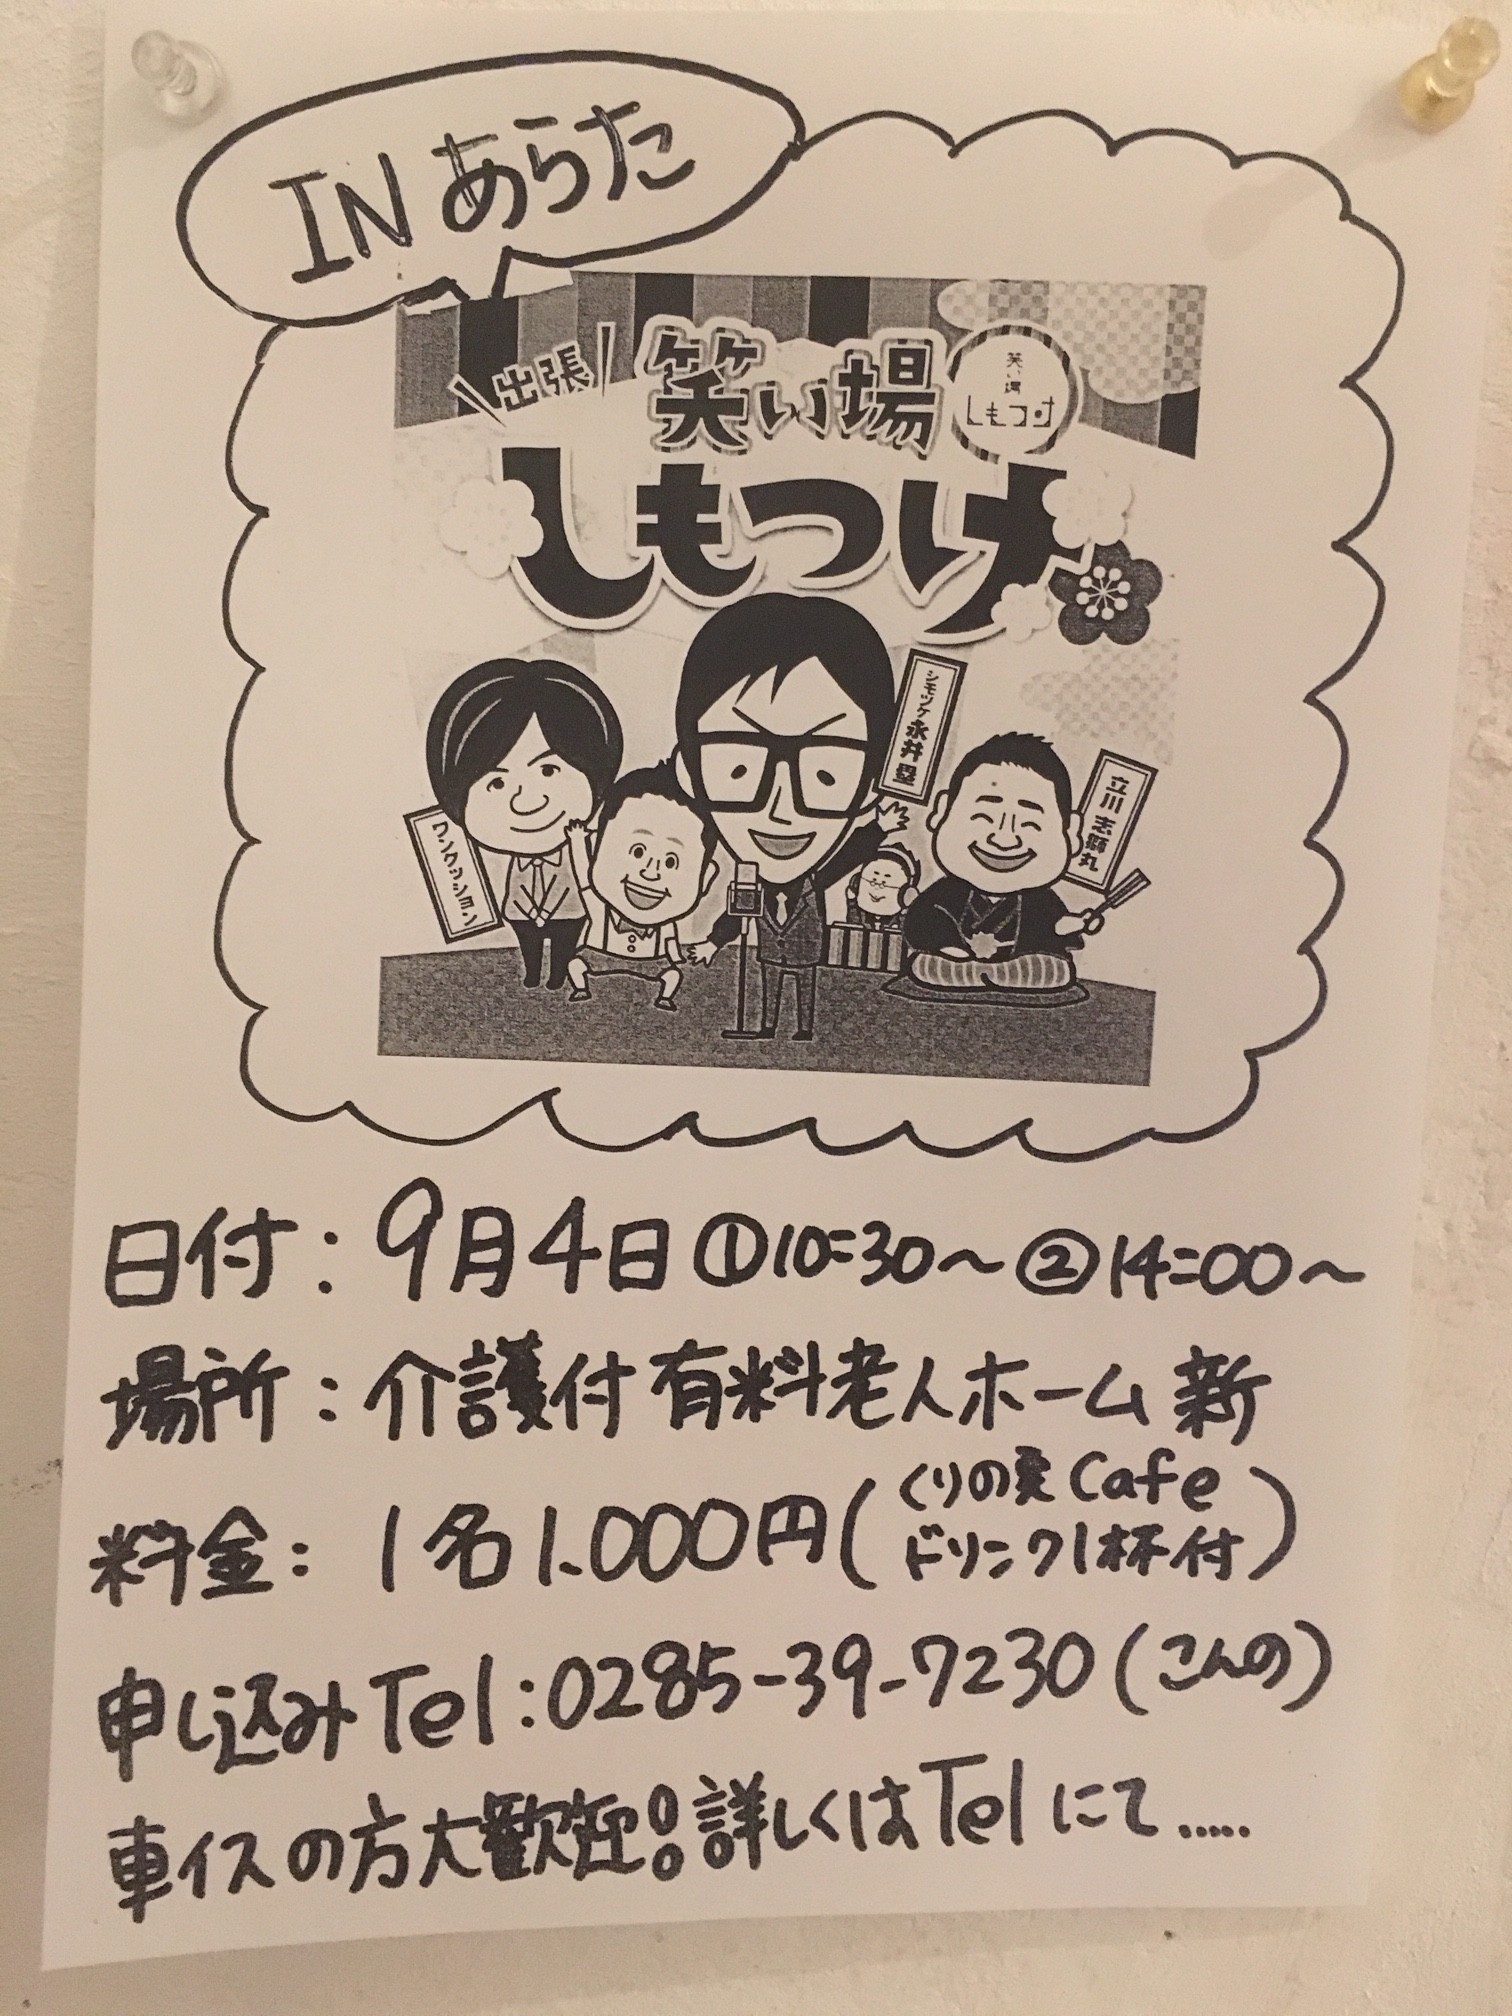 INあらた
出張
笑い場
笑い場
しもつけ
しもつけ
シモツケ 永井塁
立川 志獅丸
ワンクッション
日付:9月4日①10:30~②14:00~
場所:介護付有料老人ホーム 新
料金:1名1,000円(くりの実Cafe
ドリンク1杯付)
申し込みTel:0285-39-7230(こんの)
車イスの方大歓迎!!詳しくはTelにて.....